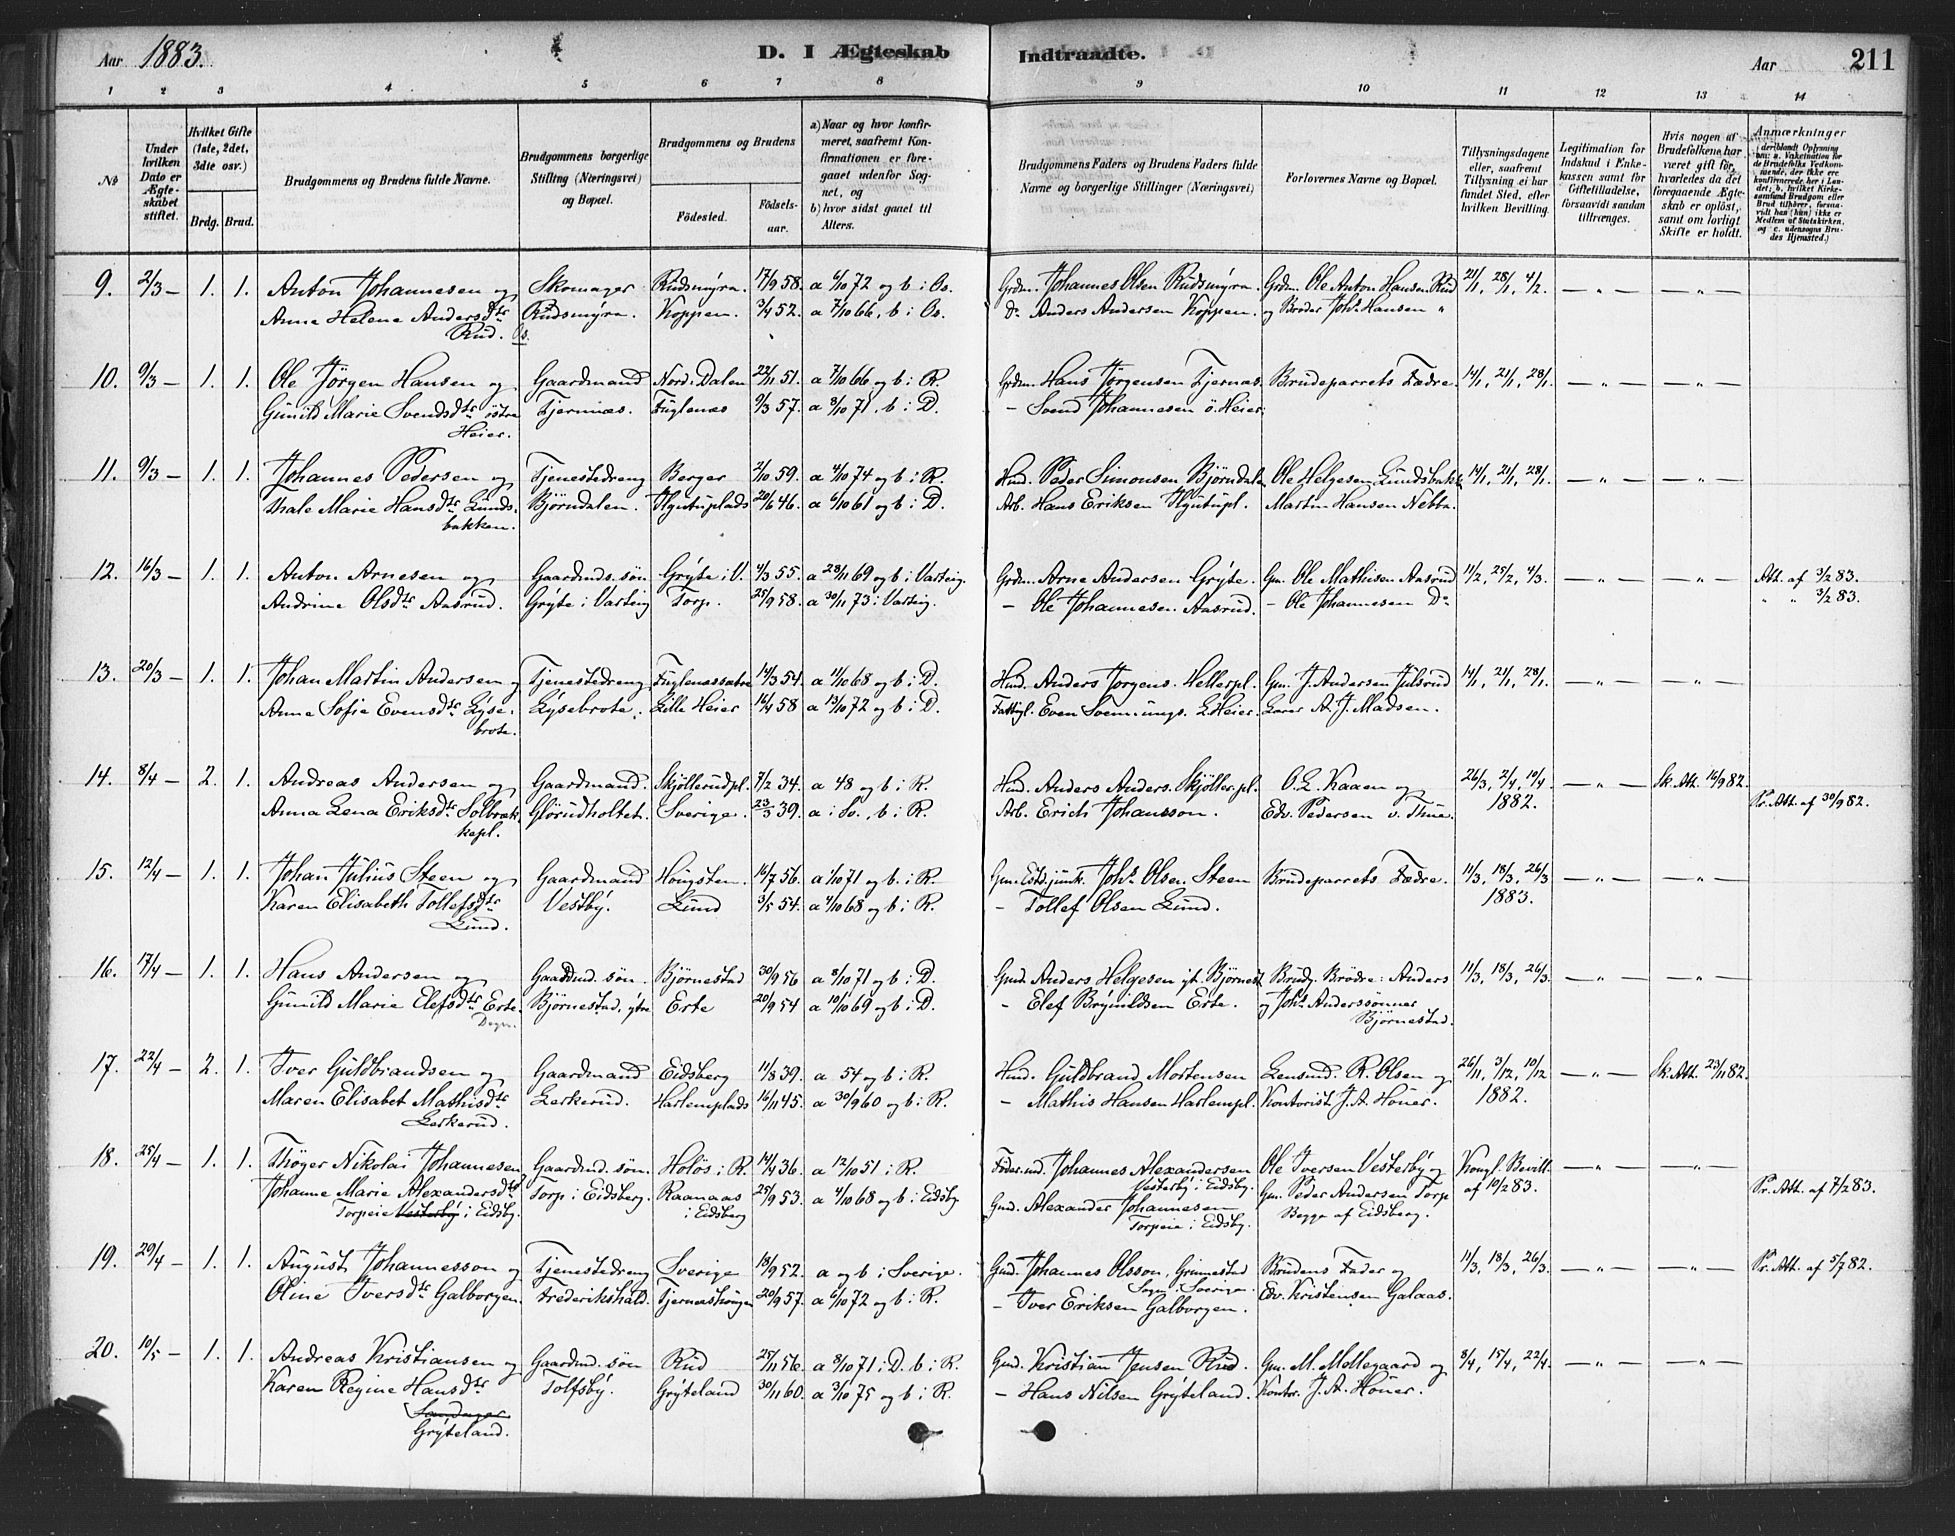 Aar 1883.
D. I Ægteskab Indtraadte.
Aar 211
1 2 3 4 5 6 7 8 9 10 11 12 13 14
No
Under hvilken Dato er Ægteskabet stiftet.
Hvilket Gifte (1ste, 2det, 3die osv.)
Brdg. Brud.
Brudgommens og Brudens fulde Navne.
Brudgommens borgerlige Stilling (Næringsvei) og Bopæl.
Brudgommens og Brudens
Födested. Födselsaar.
a) Naar og hvor konfirmeret, saafremt Konfirmationen er foregaaet udenfor Sognet, og
b) hvor sidst gaaet til Alters.
Brudgommens Faders og Brudens Faders fulde Navne og borgerlige Stillinger (Næringsvei)
Forlovernes Navne og Bopæl.
Tillysningsdagene eller, saafremt Tillysning ei har fundet Sted, efter hvilken Bevilling.
Legitimation for Indskud i Enkekassen samt for Giftetilladelse, forsaavidt saadan tiltrænges.
Hvis nogen af Brudefolkene har været gift för, hvorledes da det foregaaende Ægteskab er oplöst, samt om lovligt Skifte er holdt.
Anmærkninger
9. 2/3 — 1. 1. Anton Johannesen og Skomager Rudsmyra. 17/9 58. a 6/10 72 og b i Os. Grdm. Johannes Olsen Rudsmyra. Grdm. Ole Anton Hansen Rud 21/1, 28/1, 4/2. — „ — — „ —
Anna Helene Andersdtr Rudsmyra. Koppen. 3/4 52. a 7/10 66, b i Os. Do Anders Andersen Koppen. og Broder Johs Hansen „
Rud. Os.
10. 9/3 — 1. 1. Ole Jörgen Hansen og Gaardmand Nord. Dalen 22/11 51. a 7/10 66 og b i R. Grdm. Hans Jörgensen Tjernæs. Brudeparrets Fædre. 14/1, 21/1, 28/1. — „ — — „ —
Gunild Marie Svendsdtr östre Tjernæs. Fuglenæs 9/3 57. a 8/10 71, b i D. — Svend Johannesen ö. Heier.
Heier.
11. 9/3 — 1. 1. Johannes Pedersen og Tjenestedreng Berger 2/10 59. a 4/10 74 og b i R. Hmd. Peder Simonsen Björndalen Ole Helgesen Lundsbakk. 14/1, 21/1, 28/1. — „ — — „ —
Thale Marie Hansdtr Lunds- Björndalen. 20/6 46. a 6/10 61 og b i D. Arb. Hans Eriksen Martin Hansen Nebba.
bakken.
12. 16/3 — 1. 1. Anton Arnesen og Gaardmds. sön Gryte i V. 4/3 55. a 28/11 69 og b i Varteig. Grdm. Arne Andersen Gryte. Gm. Ole Mathisen Aasrud 11/2, 25/2, 4/3. — „ — — „ — Att. af 3/2 83.
Andrine Olsdtr Aasrud. Gryte i Varteig Torp. 25/9 58. a 30/11 73 i Varteig. — Ole Johannesen Aasrud. — Ole Johannesen Do „ „ 3/2 83.
13. 20/3 — 1. 1. Johan Martin Andersen og Tjenestedreng Fuglenæssætre 14/3 54. a 11/10 68 og b i D. Hmd. Anders Jörgens. Hellerpl. Gm. J. Andersen Julsrud 14/1, 21/1, 28/1. — „ — — „ —
Anne Sofie Evensdtr Lyse- Lysebrote. Lille Heier 16/4 58 a 13/10 72 og b i D. Fattigl. Even Svenungs. L. Heier. Lærer A. J. Madsen.
brote.
14. 8/4 — 2. 1. Andreas Andersen og Gaardmand. Skjöllerudpl. 7/2 34. a 48 og b i R. Hmd. Anders Anders. Skjöller.pl. O. L. Kaaen og 26/3, 2/4, 10/4 — „ — Sk. Att. 16/9 82.
Anna Lena Eriksdtr Solbræk- Glörudholtet. Sverige. 23/3 39. a i Sv., b i R. Arb. Erich Johansson. Edv. Pedersen v. Thue. 1882. Pr. Att. af 30/9 82.
kepl.
15. 12/4 — 1. 1. Johan Julius Steen og Gaardmand Höugsten. 16/7 56. a 1/10 71 og b i R. Gm. Johs Olsen Steen Brudeparrets Fædre. 11/3, 18/3, 26/3 — „ — — „ —
Karen Elisabeth Tollefsdtr Vestby. Lund 3/5 54. a 4/10 68 og b i R. — Tollef Olsen Lund. 1883.
Lund.
16. 17/4 — 1. 1. Hans Andersen og Gaardmd. sön Björnestad 30/9 56 a 8/10 71 og b i D. Gmd. Anders Helgesen yt. Björnest. Brudg. Brödre: Anders 11/3, 18/3, 26/3 — „ — — „ —
Gunild Marie Elefsdtr Erte. Björnestad, ytre Erte 20/9 54 a 10/10 69 og b i D. — Elef Brynildsen Erte. og Johs Anderssönner
Björnestad.
17. 22/4 — 2. 1. Iver Guldbrandsen og Gaardmand Eidsberg 11/8 39. a 54 og b i R. Hmd. Guldbrand Mortensen Lensmd. R. Olsen og 26/11, 3/12, 10/12 — „ — Sk. Att. 23/11 82.
Maren Elisabet Mathisdtr Lerkerud. Harlemplads 16/11 45. a 30/9 60 og b i R. — Mathis Hansen Harlempl. Kontorist J. A. Höuer. 1882.
Lerkerud.
18. 25/4 — 1. 1. Thöger Nikolai Johannesen Gaardmd. sön. Holös i R. 14/4 36. a 12/10 51 i R. Johannes Alexandersen Ole Iversen Vesterby og Kongl. Bevill. — „ — — „ —
Johanne Marie Alexandersdtr Torp i Eidsberg. Raanaas 25/9 53. a 4/10 68 og b i Eidsbg Vesterby i Eidsbg. Gm. Peder Andersen Torp af 10/2 83. Pr. Att. af 7/2 83.
Torpeie Vesterby i Eidsbg. i Eidsberg Gmd. Alexander Johannesen Begge af Eidsberg.
Torpeie i Eidsbg.
19. 29/4 — 1. 1. August Johannesson og Tjenestedreng Sverige 18/9 52. a og b i Sverige. Gmd. Johannes Olsson, Grinnestad Brudens Fader og 11/3, 18/3, 26/3. — „ — — „ — Pr. Att. af 5/7 82.
Oline Iversdtr Galborgen. Frederikshald. Tjernæshöugen 20/9 57. a 6/10 72 og b i R. Sogn, Sverige. Edv. Kristensen Galaas.
— Iver Eriksen Galborgen.
20. 10/5 — 1. 1. Andreas Kristiansen og Gaardmd. sön Rud 25/11 56. a 8/10 71 i D. b i R. Gmd. Kristian Jensen Rud. Gm. M. Mellegaard og 8/4, 15/4, 22/4. — „ — — „ —
Karen Regine Hansdtr Tolfsby. Gryteland 30/11 60. a 3/10 75 og b i R. — Hans Nilsen Gryteland. Kontor. J. A. Höuer.
Gryteland.